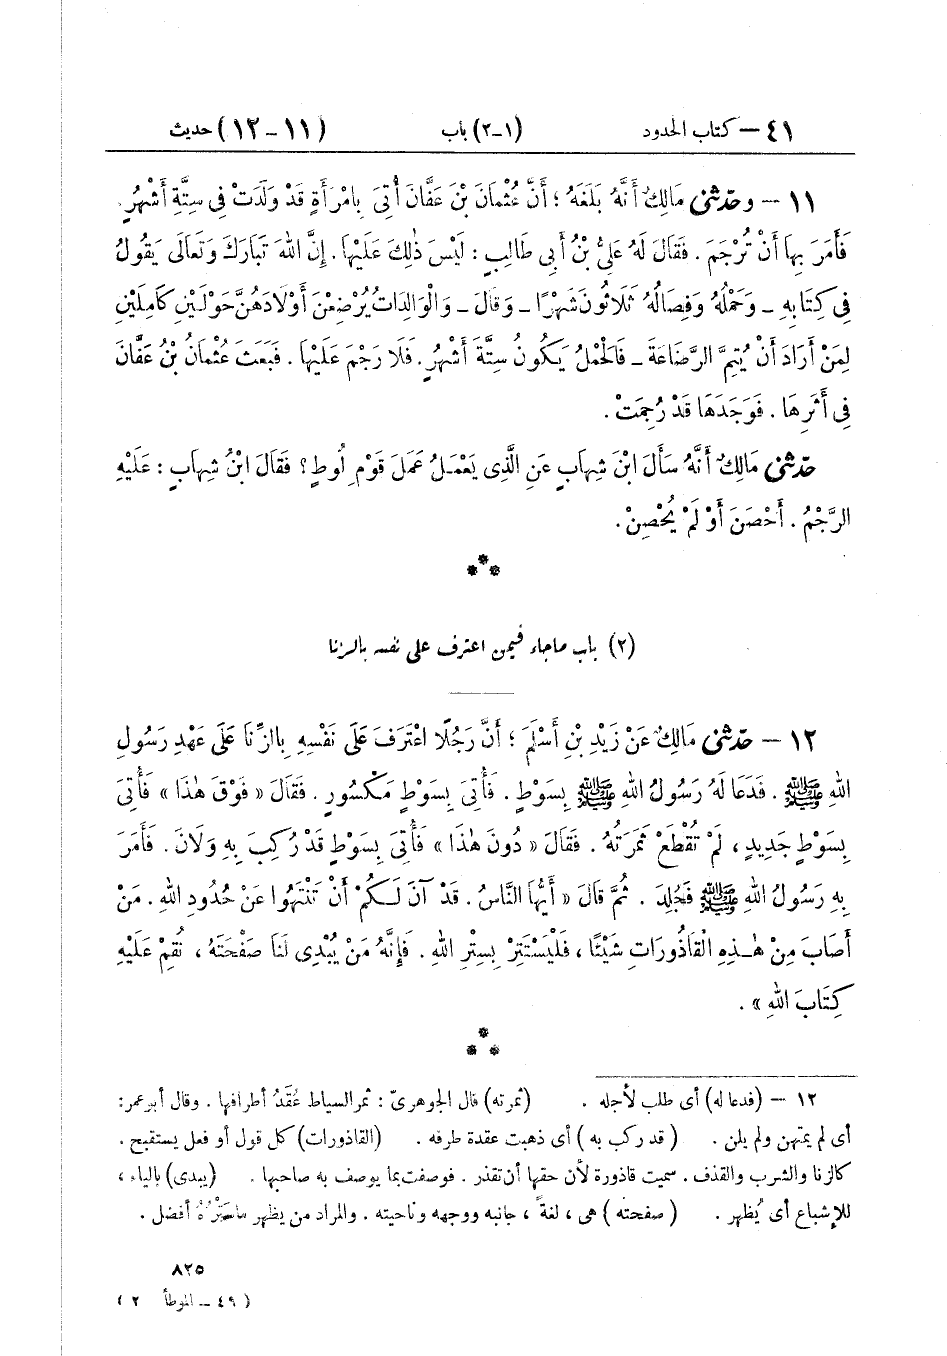 ٤١ – كتاب الحدود (١-٢) باب (١١ - ١٢) حديث
١١ – وحدّثنى مَالِكٌ أَنَّهُ بَلَغَهُ ؛ أَنَّ عُثْمَانَ بْنَ عَفَّانَ أُتِىَ بِامْرَأَةٍ قَدْ وَلَدَتْ فِى سِتَّةِ أَشْهُرٍ.
فَأَمَرَ بِهَا أَنْ تُرْجَمَ . فَقَالَ لَهُ عَلِىُّ بْنُ أَبِى طَالِبٍ : لَيْسَ ذٰلِكَ عَلَيْهَا . إِنَّ اللهَ تَبَارَكَ وَتَعَالَى يَقُولُ
فِى كِتَابِهِ ــ وَحَمْلُهُ وَفِصَالُهُ ثَلَاثُونَ شَهْرًا ــ وَقَالَ ــ وَالْوَالِدَاتُ يُرْضِعْنَ أَوْلَادَهُنَّ حَوْلَيْنِ كَامِلَيْنِ
لِمَنْ أَرَادَ أَنْ يُتِمَّ الرَّضَاعَةَ ــ فَالْحَمْلُ يَكُونُ سِتَّةَ أَشْهُرٍ . فَلَا رَجْمَ عَلَيْهَا . فَبَعَثَ عُثْمَانُ بْنُ عَفَّانَ
فِى أَثَرِهَا . فَوَجَدَهَا قَدْ رُجِمَتْ .
حدّثنى مَالِكٌ أَنَّهُ سَأَلَ ابْنَ شِهَابٍ عَنِ الَّذِى يَعْمَلُ عَمَلَ قَوْمِ لُوطٍ ؟ فَقَالَ ابْنُ شِهَابٍ : عَلَيْهِ
الرَّجْمُ . أَحْصَنَ أَوْ لَمْ يُحْصِنْ .
***
(٢) باب ماجاء فيمن اعترف على نفسه بالزنا
١٢ – حدّثنى مَالِكٌ عَنْ زَيْدِ بْنِ أَسْلَمَ ؛ أَنَّ رَجُلًا اعْتَرَفَ عَلَى نَفْسِهِ بِالزِّنَا عَلَى عَهْدِ رَسُولِ
اللهِ ﷺ . فَدَعَا لَهُ رَسُولُ اللهِ ﷺ بِسَوْطٍ . فَأُتِىَ بِسَوْطٍ مَكْسُورٍ . فَقَالَ « فَوْقَ هٰذَا » فَأُتِىَ
بِسَوْطٍ جَدِيدٍ ، لَمْ تُقْطَعْ ثَمَرَتُهُ . فَقَالَ « دُونَ هٰذَا » فَأُتِىَ بِسَوْطٍ قَدْ رُكِبَ بِهِ وَلَانَ . فَأَمَرَ
بِهِ رَسُولُ اللهِ ﷺ فَجُلِدَ . ثُمَّ قَالَ « أَيُّهَا النَّاسُ . قَدْ آنَ لَكُمْ أَنْ تَنْتَهُوا عَنْ حُدُودِ اللهِ . مَنْ
أَصَابَ مِنْ هٰذِهِ الْقَاذُورَاتِ شَيْئًا ، فَلْيَسْتَتِرْ بِسِتْرِ اللهِ . فَإِنَّهُ مَنْ يُبْدِى لَنَا صَفْحَتَهُ ، نُقِمْ عَلَيْهِ
كِتَابَ اللهِ » .
***
١٢ – (فدعا له) أى طلب لأجله . (ثمرته) قال الجوهرىّ : ثمر السياط عُقَدُ أطرافها . وقال أبو عمر :
أى لم يمتهن ولم يلن . (قد ركب به) أى ذهبت عقدة طرفه . (القاذورات) كل قول أو فعل يستقبح .
كالزنا والشرب والقذف . سميت قاذورة لأن حقها أن تقذر . فوصفت بما يوصف به صاحبها . (يبدى) بالياء ،
للإشباع أى يُظهر . (صفحته) هى ، لغةً ، جانبه ووجهه وناحيته . والمراد من يظهر ما سَتْرُهُ أفضل .
٨٢٥
(٤٩ – الموطأ ٢)